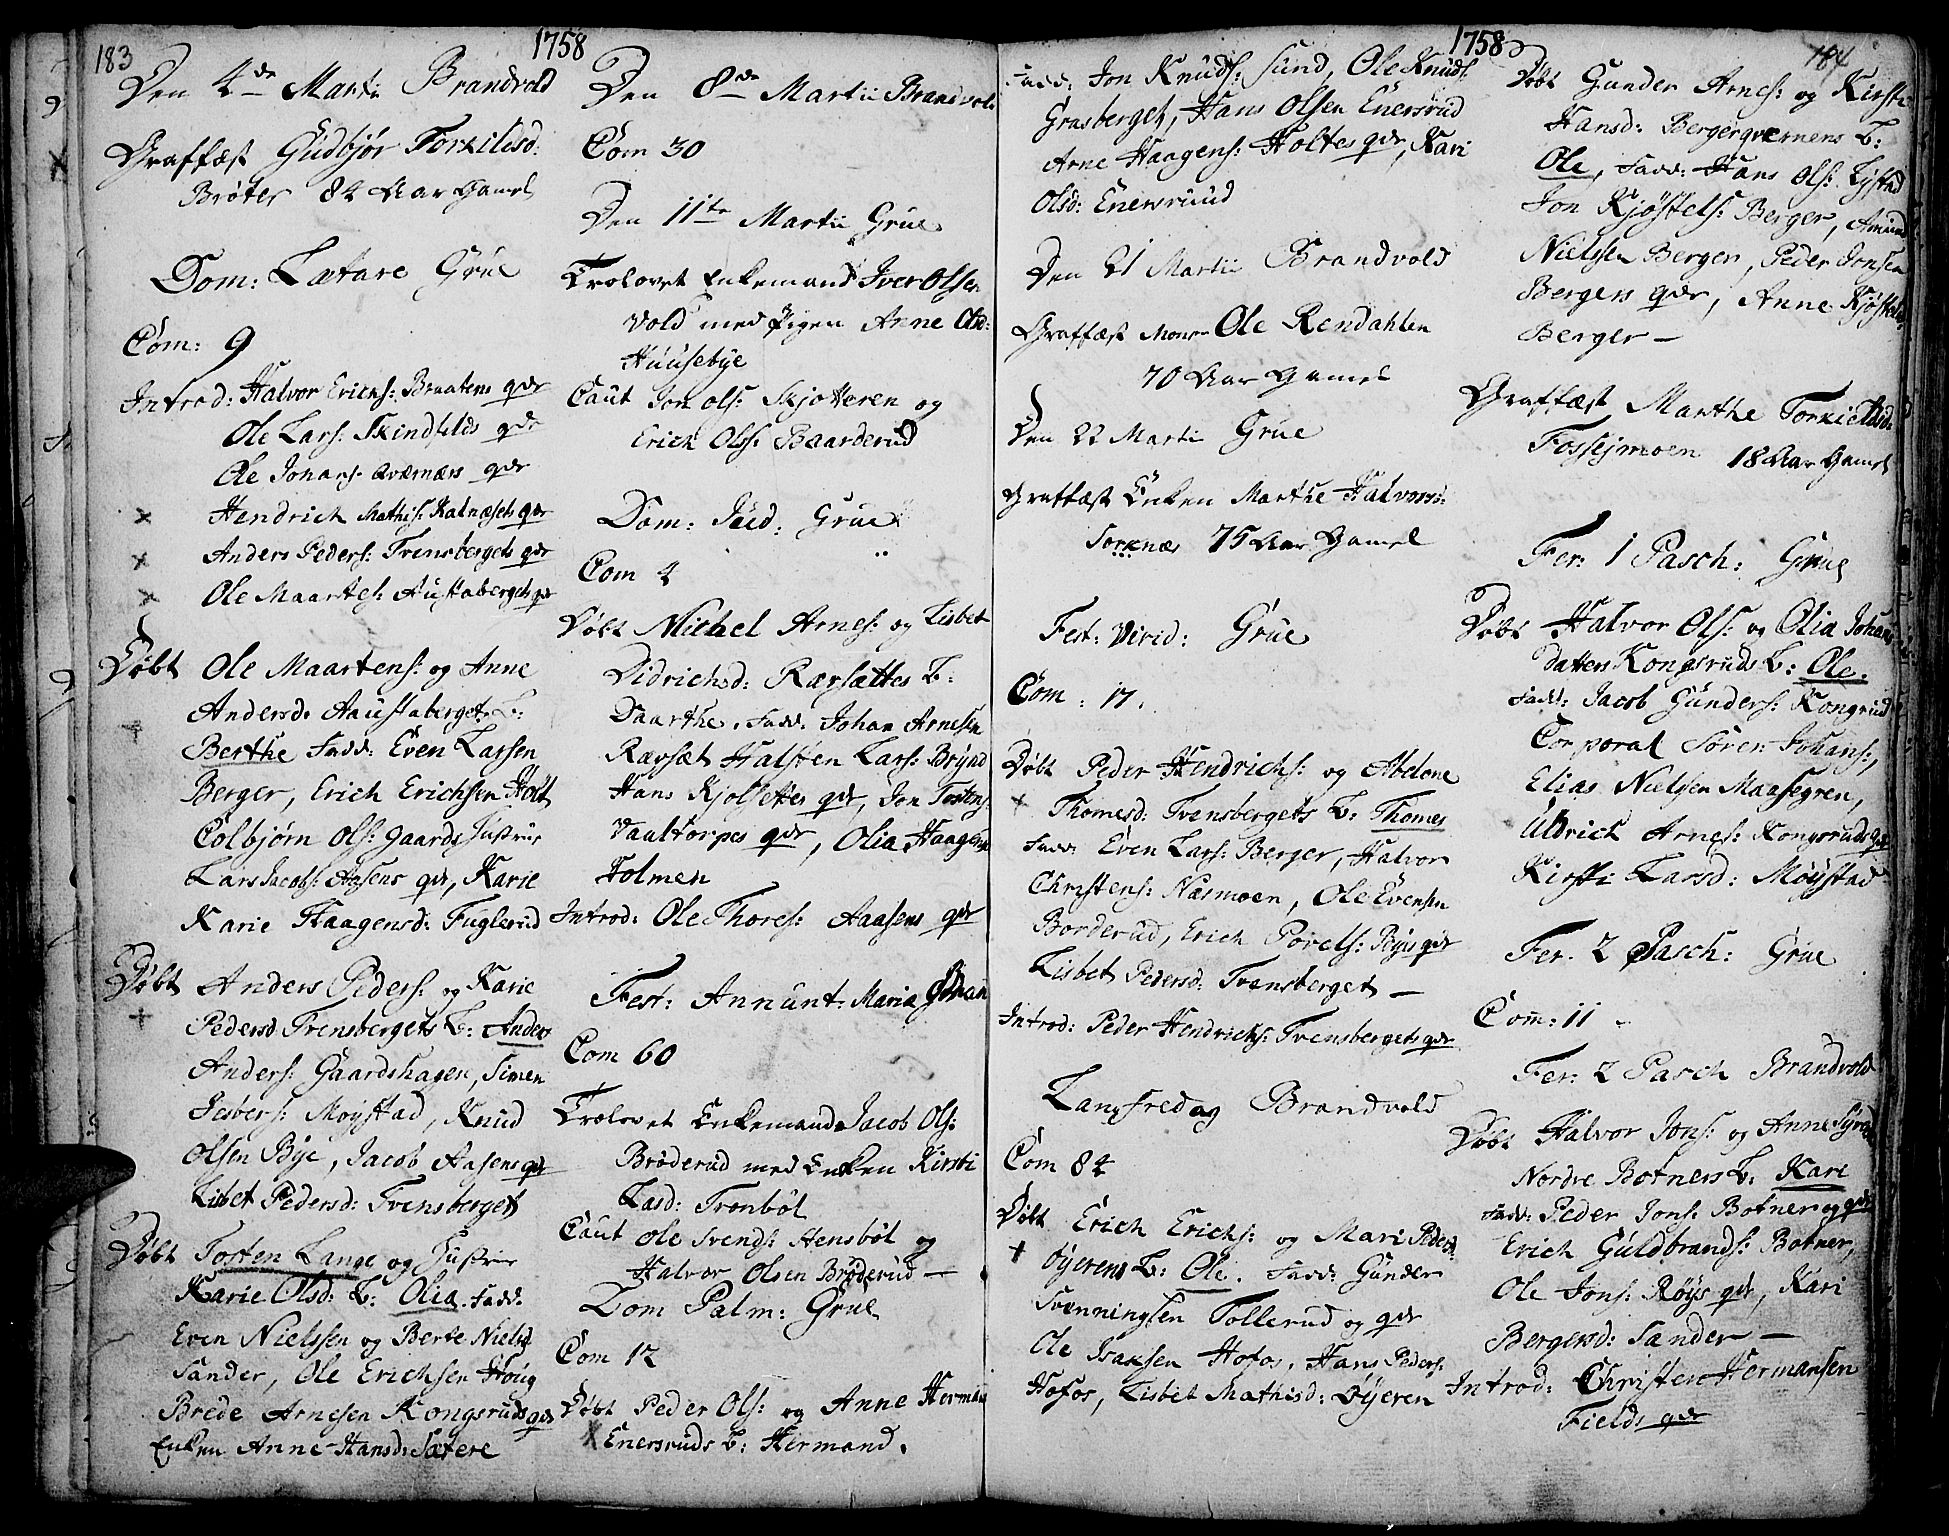 183
1758
Den 4de Martii Brandvold
Graffæst Gudbjør Torkildsd:
Brøter 84 Aar Gamel
Dom: Lætare Grue
Com: 9
Introd: Halvor Erichs: Braatens qdr
Ole Lars: Skindfelds qdr
Ole Johans: qværnæs qdr
Hendrich Mathis: Kalnæsets qdr
Anders Peders: Tvensbergets qdr
Ole Maartes: Austabergets qdr
Døbt Ole Maartens: og Anne
Andersd: Aaustaberget B:
Berthe Fadd: Even Larsen
Berger, Erich Erichsen Holt
Colbjørn Ols: Gaards Hustrue
Lars Jacobs: Aasens qdr, Karie
Karie Haagensd: Fuglerud
Døbt Anders Peders: og Karie
Pedersd Tvensbergets B: Anders
Anders: Gaardshagen, Simen
Jesbers: Moystad, Knud
Olsen Bye, Jacob Aasens qdr
Lisbet Pedersd: Tvensberget
Døbt Tosten Lange og Hustrue
Karie Olsd: B: Olia. Fadd:
Even Nielssen og Berte Nielsd
Sander, Ole Erichsen Houg
Brede Arnesen Kongsruds qdr
Enken Anne Hansd: Sætere
Den 8de Martii Brandvold
Com 30
Den 11te Martii Grue
Trolovet Enkemand Iver Olsen
Vold med Pigen Anne Olsd:
Huusebye
Caut Jon Ols: Skjøtteren og
Erich Ols: Baarderud
Dom: Jud: Grue
Com 4
Døbt Michel Arnes: og Lisbet
Didrichsd: Rævsættes B:
Daarthe. Fadd: Johan Arnesen
Rævsæt Halsten Lars: Brynd
Hans Kjølsettes qdr, Jon Tostens:
Vaaltorpes qdr, Olia Haagens
Holmen
Introd: Ole Thores: Aaasens qdr
Fest: Annunt: Maria
Com 60
Trolovet Enkemand Jacob Ols:
Brøderud med Enken Kirsti
Lasd: Trønbøl
Caut Ole Svends: Hensbøl og
Halvor Olsen Brøderud —
Dom Palm: Grue
Com 12
Døbt Peder Ols: og Anne Herman
Enersruds B: Hermand.
1758
184
Fadd: Jon Knuds: Sund, Ole Knuds:
Grasberget, Hans Olsen Enersrud
Arne Haagens: Holtes qdr, Kari
Olsd: Enersruud
Den 21 Martii Brandvold
Graffæst Monsr Ole Rendahlen
70 Aar Gamel
Den 22 Martii Grue
Graffæst Enken Marthe Halvorsd:
Sorknæs 75 Aar Gamel
Fest: Virid: Grue
Com: 17.
Døbt Peder Hendrichs: og Abelone
Thomesd: Tvensbergets B: Thomes
Fadd: Even Lars: Berger, Halvor
Christens: Næsmoen, Ole Evensen
Borderud, Erich Povels: Byes qdr
Lisbet Pedersd: Tvensberget —
Introd: Peder Hendrichs: Tvensbergets qdr
Langfredag Brandvold
Com 84
Døbt Erich Erichs: og Mari Pedersd:
Øyerens B: Ole. Fadd: Gunder
Svenningsen Tollerud og qdr
Ole Isaksen Hofos, Hans Peders:
Hofos, Lisbet Mathisd: Øyeren
Døbt Gunder Arnes: og Kirsti
Hansd: Bergerqværnens B:
Ole, Fadd: Hans Ols: Lystad
Jon Kjøstels: Berger, Amund
Nielssen Berger, Peder Jonsen
Bergers qdr, Anne Kjøstelsd
Berger —
Graffæst Marthe Torkieldsd:
Fossejmoen 18 Aar Gamel
Fer: 1 Pasch: Grue
Døbt Halvor Ols: og Olia Johans
Datters Kongsruds B: Ole.
Fadd: Jacob Gunders: Kongsrud
Corporal Søren Johans:,
Elias Nielsen Maasegren,
Uldrich Arnes: Kongsruds qdr
Kirsti Larsd: Møystad
Fer. 2 Pasch: Grue
Com: 11
Fer. 2 Pasch Brandvold
Døbt Halvor Jons: og Anne Syversd
Nordre Botners B: Kari
Fadd: Peder Jons: Botner og qdr
Erich Guldbrands: Botner,
Ole Jons: Røys qdr, Kari
Bergersd: Sander —
Introd: Christen Hermansen
Fields qdr